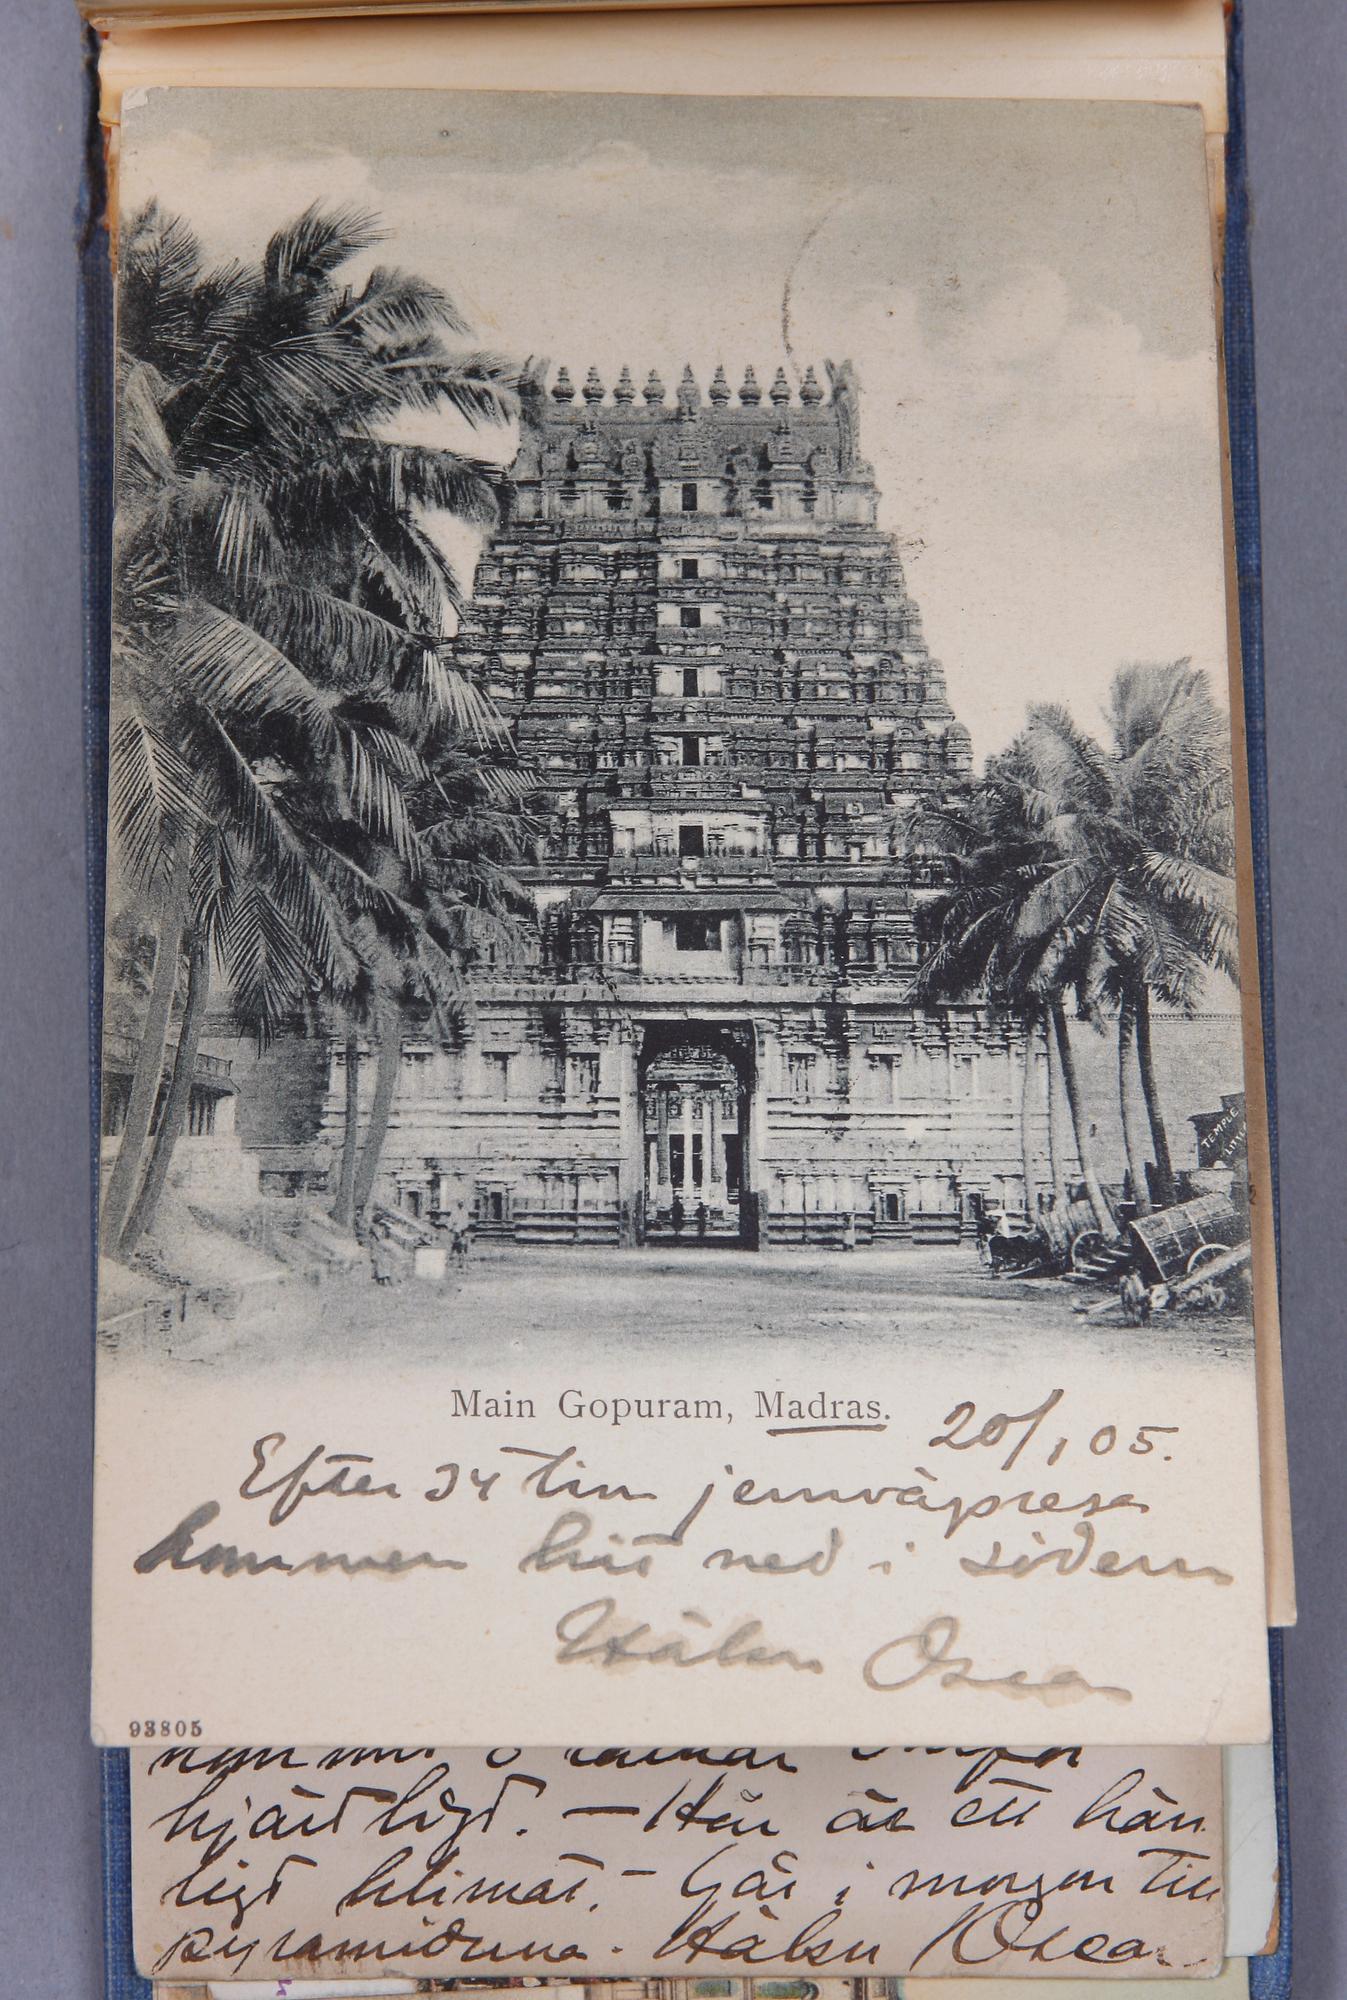 TEMPLE
Main Gopuram, Madras.
20/1 05.
Efter 34 tim jernvägsresa
kommen hit ned i södern
Hälsn Oscar
93805
hjärtligt. — Här är ett härt
ligt klimat. — Går i morgon till
pyramiderna. Hälsn Oscar